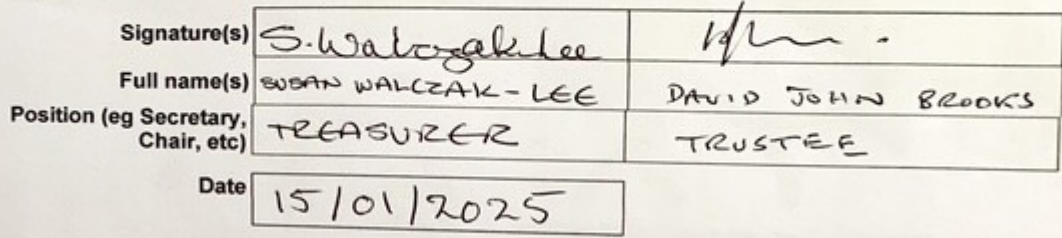 Signature(s) S.Walczak-Lee
Full name(s) SUSAN WALCZAK-LEE DAVID JOHN BROOKS
Position (eg Secretary, Chair, etc) TREASURER TRUSTEE
Date 15/01/2025